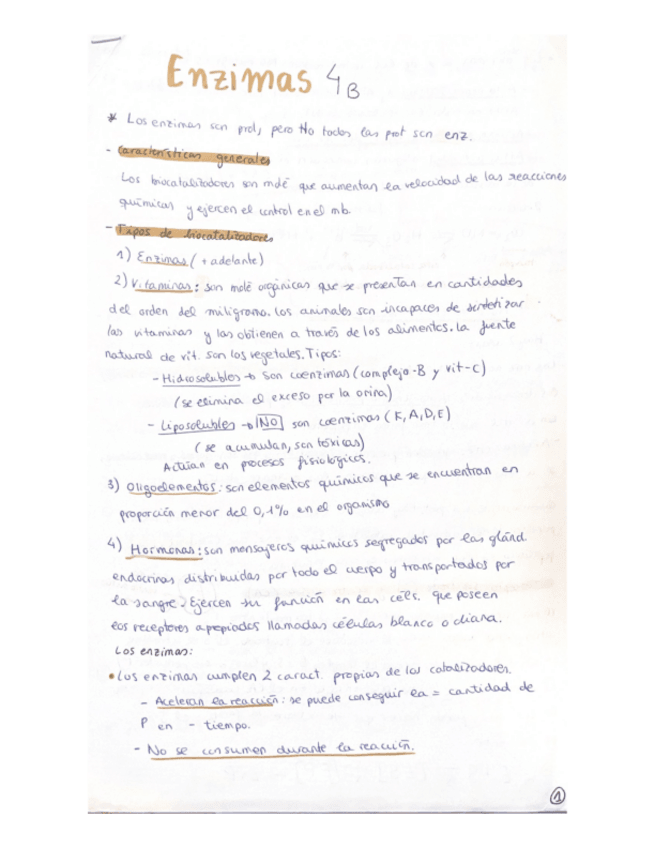 Enzimas 4B
* Los enzimas son prot, pero No todas las prot son enz.
- Características generales
Los biocatalizadores son molé que aumentan la velocidad de las reacciones
químicas y ejercen el control en el mb.
- Tipos de biocatalizadores
1) Enzimas (+ adelante)
2) Vitaminas: son molé orgánicas que se presentan en cantidades
del orden del miligramo. Los animales son incapaces de sintetizar
las vitaminas y las obtienen a través de los alimentos. La fuente
natural de vit. son los vegetales. Tipos:
- Hidrosolubles → Son coenzimas (complejo-B y vit-C)
(se elimina el exceso por la orina)
- Liposolubles → NO son coenzimas (K, A, D, E)
(se acumulan, son tóxicas)
Actúan en procesos fisiológicos.
3) Oligoelementos: son elementos químicos que se encuentran en
proporción menor del 0,1% en el organismo
4) Hormonas: son mensajeros químicos segregados por las glánd.
endocrinas distribuidas por todo el cuerpo y transportados por
la sangre. Ejercen su función en las céls. que poseen
los receptores apropiados llamadas células blanco o diana.
Los enzimas:
• Los enzimas cumplen 2 caract. propias de los catalizadores.
- Aceleran la reacción: se puede conseguir la = cantidad de
P en - tiempo.
- No se consumen durante la reacción.
1